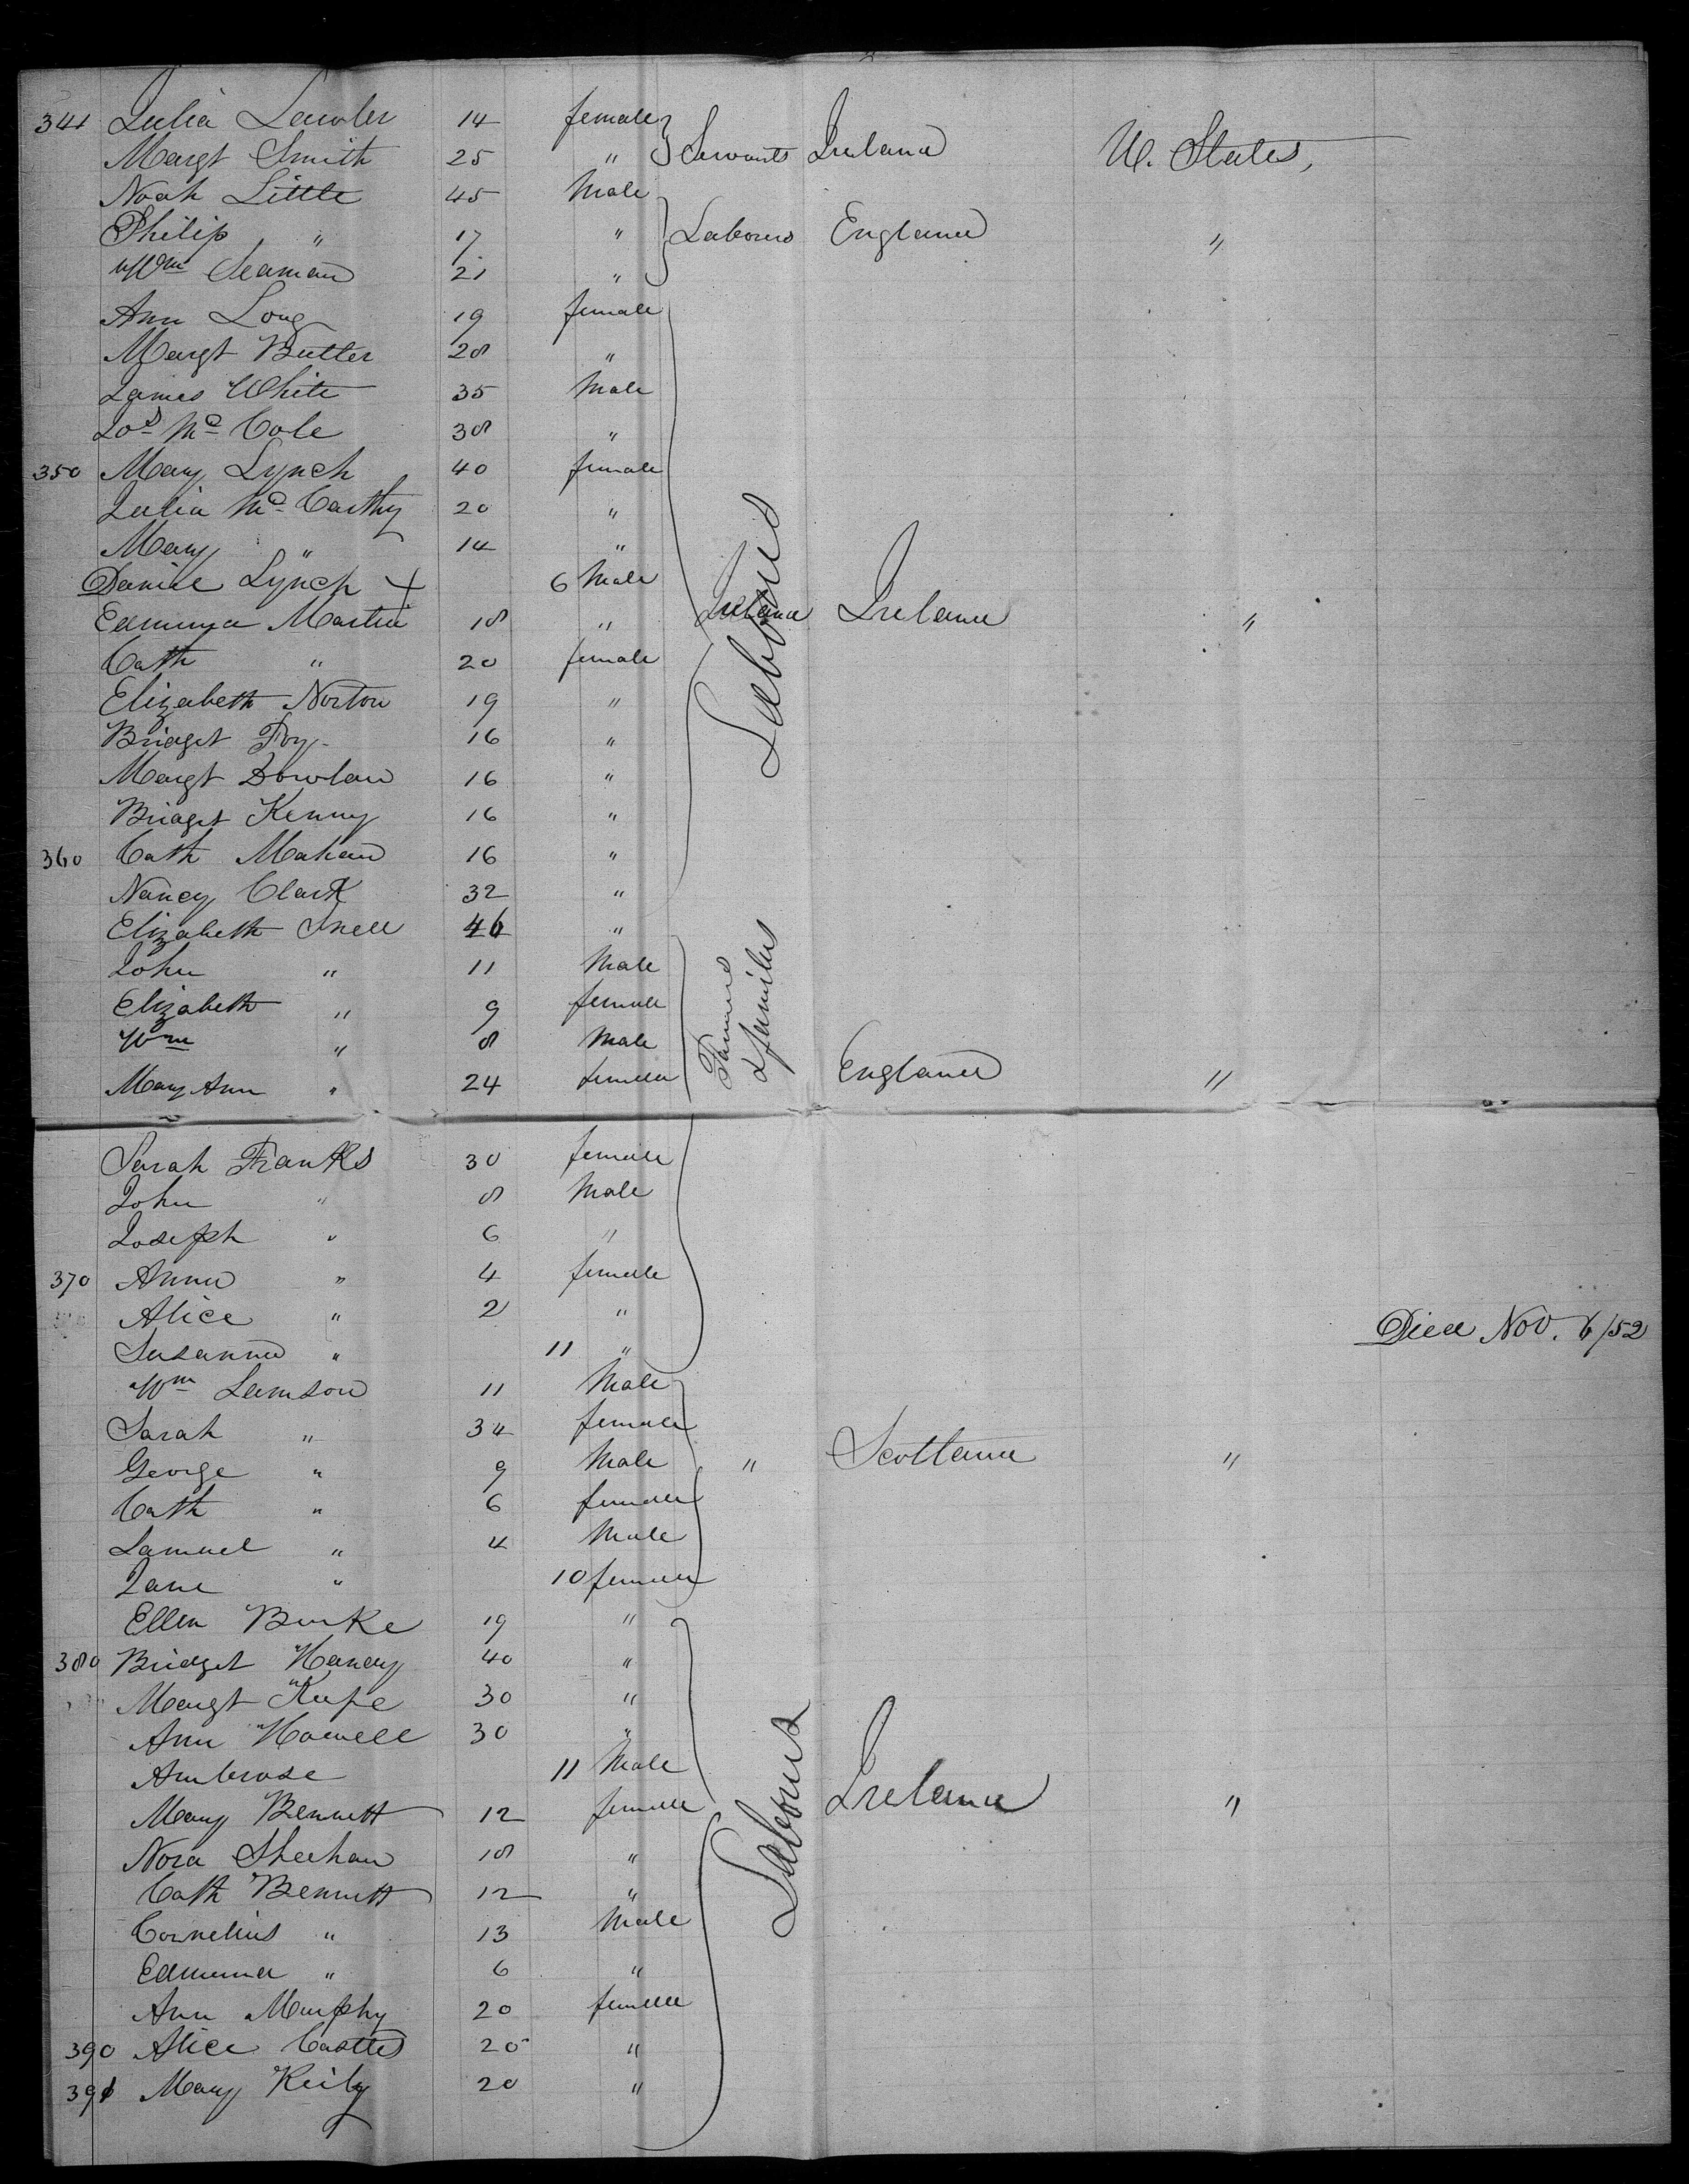 341 Julia Lawler 14 female } Servants Ireland U. States,
Margt Smith 25 "
Noah Little 45 Male
Philip " 17 " } Labourers England "
Wm Seaman 21 "
Ann Long 19 female
Margt Butler 28 "
James White 35 Male
Jos Mc Cole 38 "
350 Mary Lynch 40 female
Julia Mc Carthy 20 "
Mary " 14 "
Daniel Lynch + 6 Male
Edmund Martin 18 " Ireland Labourers Ireland "
Cath " 20 female
Elizabeth Norton 19 "
Bridget Foy 16 "
Margt Dowlan 16 "
Bridget Kenny 16 "
360 Cath Mahan 16 "
Nancy Clark 32 "
Elizabeth Snell 46 "
John " 11 Male
Elizabeth " 9 female
Wm " 8 Male
Mary Ann " 24 female } Farmers & families England "
Sarah Franks 30 female
John " 8 Male
Joseph " 6 "
370 Anna " 4 female
Alice " 2 " Died Nov. 6/52
Susanna " 11 "
Wm Lamson 11 Male
Sarah " 34 female
George " 9 Male " Scotland "
Cath " 6 female
Samuel " 4 Male
Jane " 10 female
Ellen Burke 19 "
380 Bridget Handy 40 "
Margt Kupe 30 "
Ann Howell 30 "
Ambrose 11 Male
Mary Bennett 12 female Labours Ireland "
Nora Sheehan 18 "
Cath Bennett 12 "
Cornelius " 13 Male
Edmund " 6 "
Ann Murphy 20 female
390 Alice Castles 20 "
391 Mary Keily 20 "